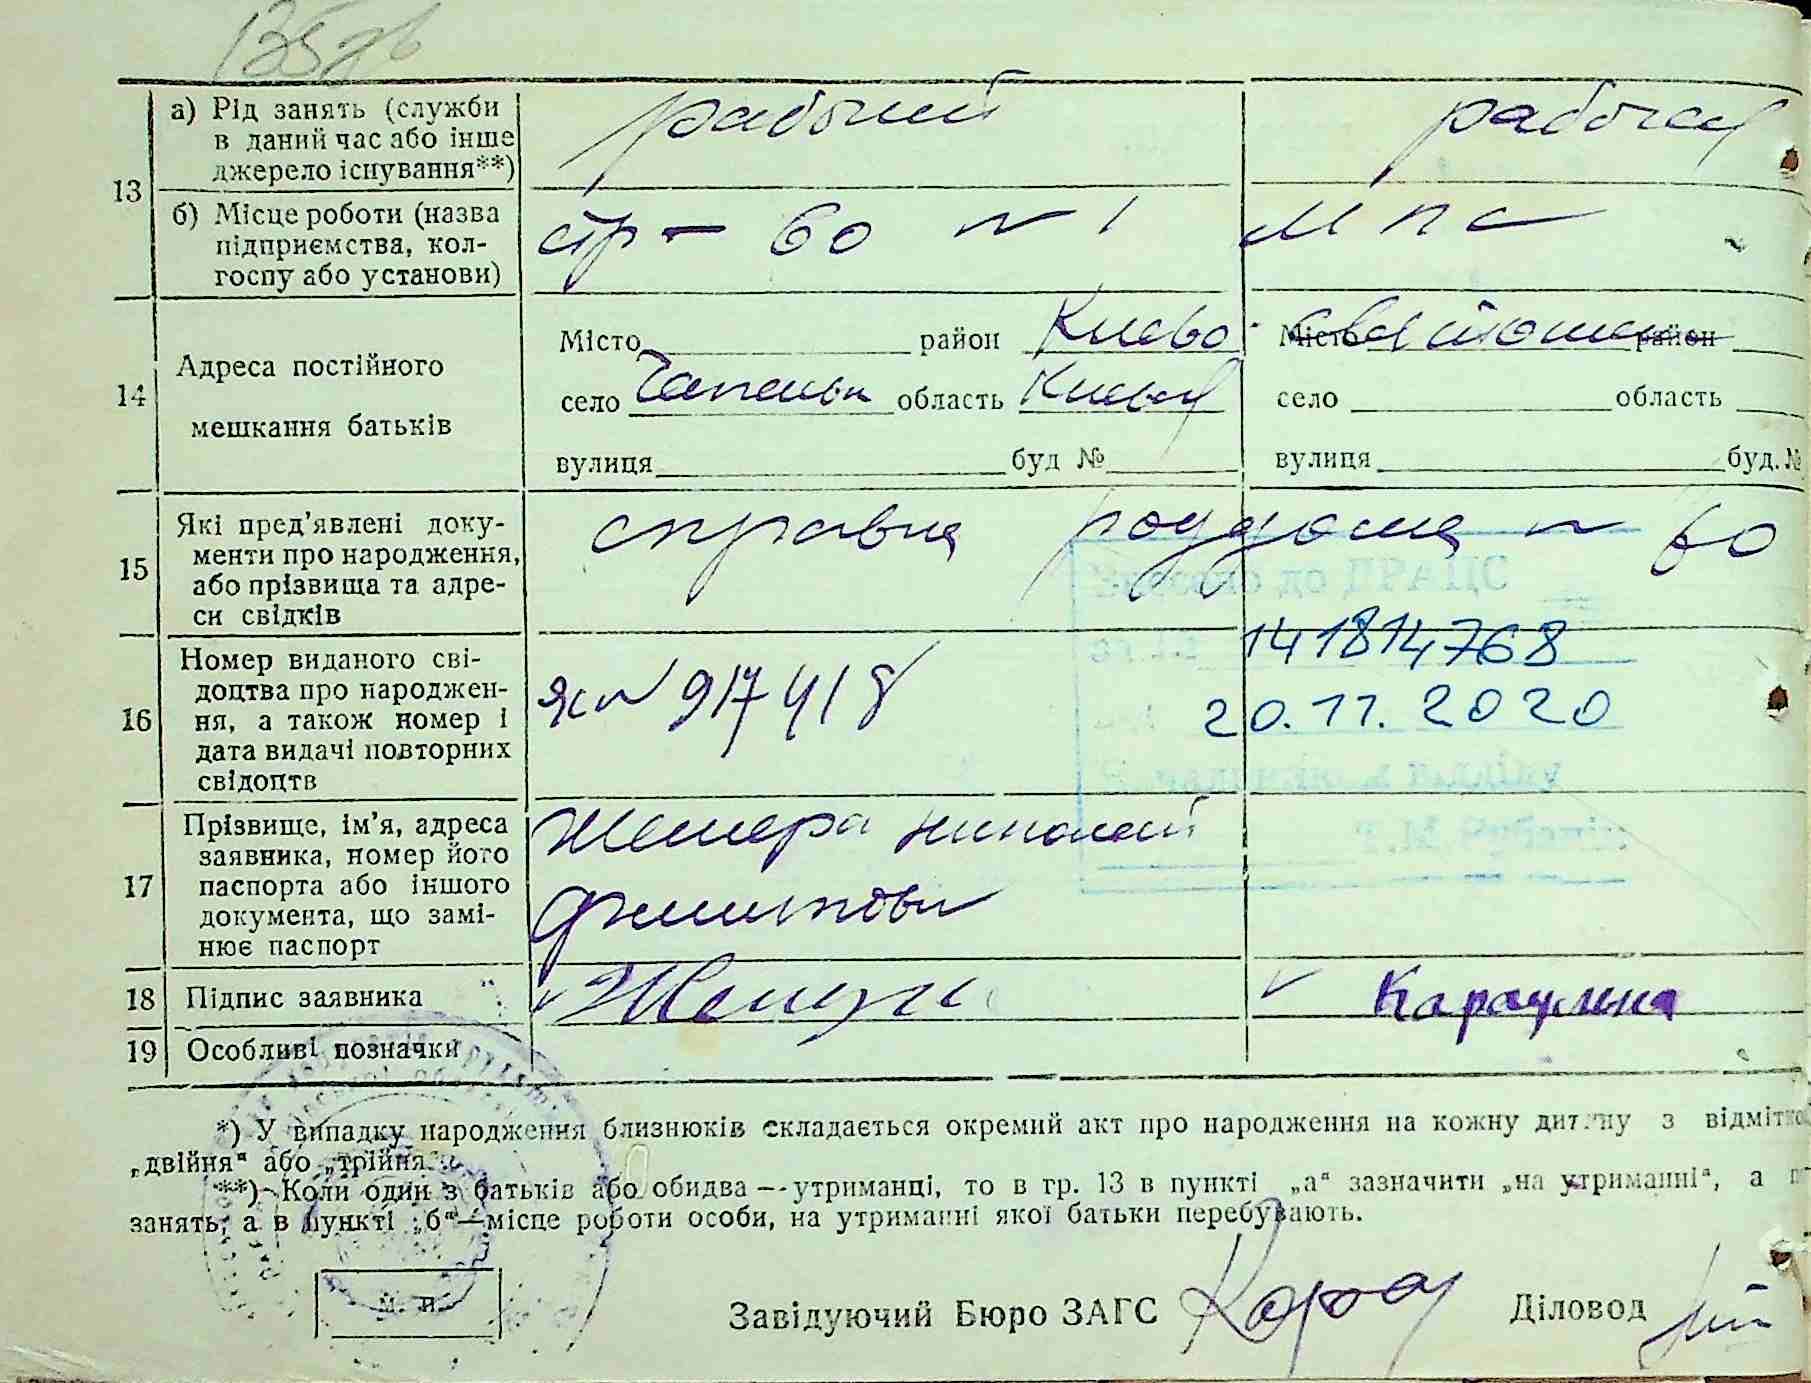 135
13
а) Рід занять (служби в даний час або інше джерело існування**)
рабочий
рабочая
б) Місце роботи (назва підприємства, колгоспу або установи)
стр- 60 № 1
МПС
14
Адреса постійного мешкання батьків
Місто район Киево-
Місто Святошин район
село Чапаевка область Киевск
село область
вулиця буд №
вулиця буд. №
15
Які пред'явлені документи про народження, або прізвища та адреси свідків
справка роддома № 60
16
Номер виданого свідоцтва про народження, а також номер і дата видачі повторних свідоцтв
№ 917418
141814768
20.11.2020
17
Прізвище, ім'я, адреса заявника, номер його паспорта або іншого документа, що замінює паспорт
Николай
18
Підпис заявника
19
Особливі позначки
*) У випадку народження близнюків складається окремий акт про народження на кожну дитину з відмітко
„двійня" або „трійня".
**) Коли один з батьків або обидва — утриманці, то в гр. 13 в пункті „а" зазначити „на утриманні", а п
занять, а в пункті „б"—місце роботи особи, на утриманні якої батьки перебувають.
М. П.
Завідуючий Бюро ЗАГС
Діловод